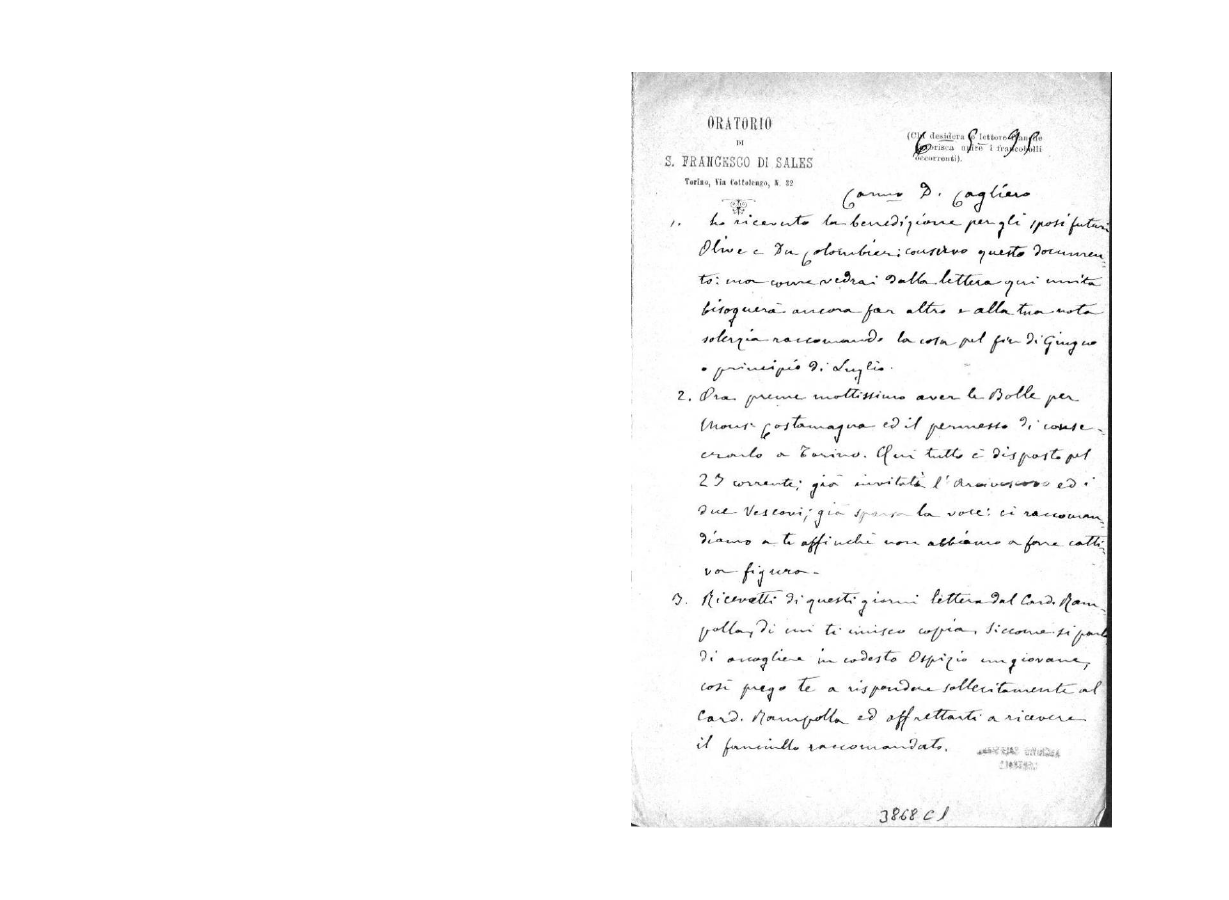 ORATORIO
DI
S. FRANCESCO DI SALES
Torino, Via Cottolengo, N. 32
(Chi desidera lettore anche
favorisca unire i francobolli
occorrenti).
6 5 95
Car.mo D. Cagliero
1. ho ricevuto la benedizione per gli sposi futuri
Olive e Du Colombier: conservo questo documen-
to: ma come vedrai dalla lettera qui unita
bisognerà ancora far altro e alla tua nota
solerzia raccomando la cosa pel fin di Giugno
o principio di Luglio.
2. Ora preme moltissimo aver le Bolle per
Mons. Costamagna ed il permesso di conse-
crarlo a Torino. Qui tutto è disposto pel
23 corrente; già invitati l'Arcivescovo ed i
due Vescovi; già sparsa la voce: ci raccoman-
diamo a te affinchè non abbiamo a fare catti-
va figura.
3. Ricevetti di questi giorni lettera dal Card. Ram-
polla, di cui ti unisco copia. Siccome si parla
di accogliere in codesto Ospizio un giovane,
così prego te a rispondere sollecitamente al
Card. Rampolla ed affrettarti a ricevere
il fanciullo raccomandato.
3868 C1